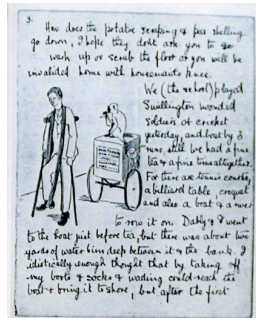 3.
How does the potatoe scraping & pea shelling
go down, I hope they dont ask you to do
wash up or scrub the floor or you will be
invalided home with housemaids knee.
We (the school) played
Swillington wounded
soldiers at cricket
yesterday, and beat by 3
runs, still we had a fine
tea & a fine time altogether.
For there are tennis courts,
a billiard table, croquet
and also a boat & a river
to row it on. Dably & I went
to the boat just before tea, but there was about two
yards of water 3in deep between it & the bank. I
idiotically enough thought that by taking off
my boots & socks & wading could reach the
boat & bring it to shore, but after the first